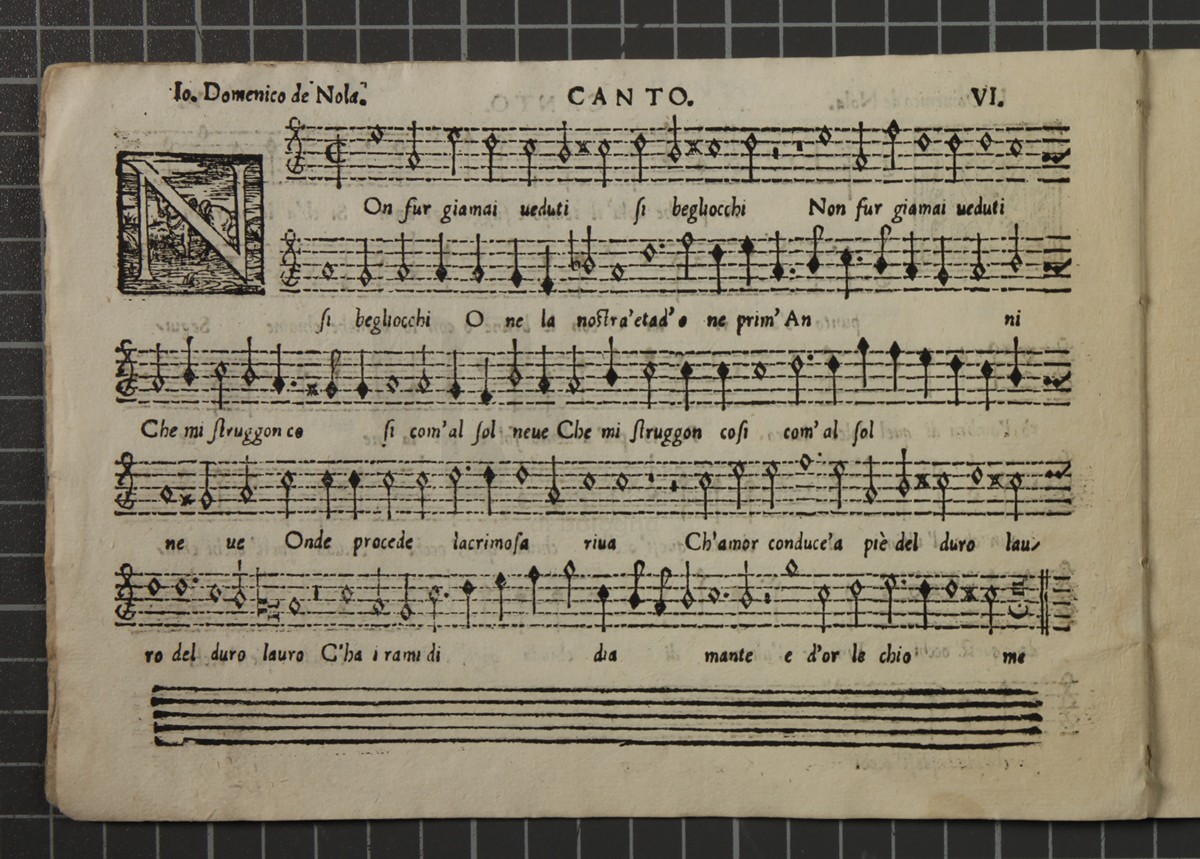 Io. Domenico de Nola.
CANTO.
VI.
NOn fur giamai ueduti ſi begliocchi Non fur giamai ueduti
ſi begliocchi O ne la noſtra'etad'o ne prim'An ni
Che mi ſtruggon co ſi com'al ſol neue Che mi ſtruggon coſi com'al ſol
ne ue Onde procede lacrimoſa riua Ch'amor conduce'a piè del duro lau
ro del duro lauro C'ha i rami di dia mante e d'or le chio me